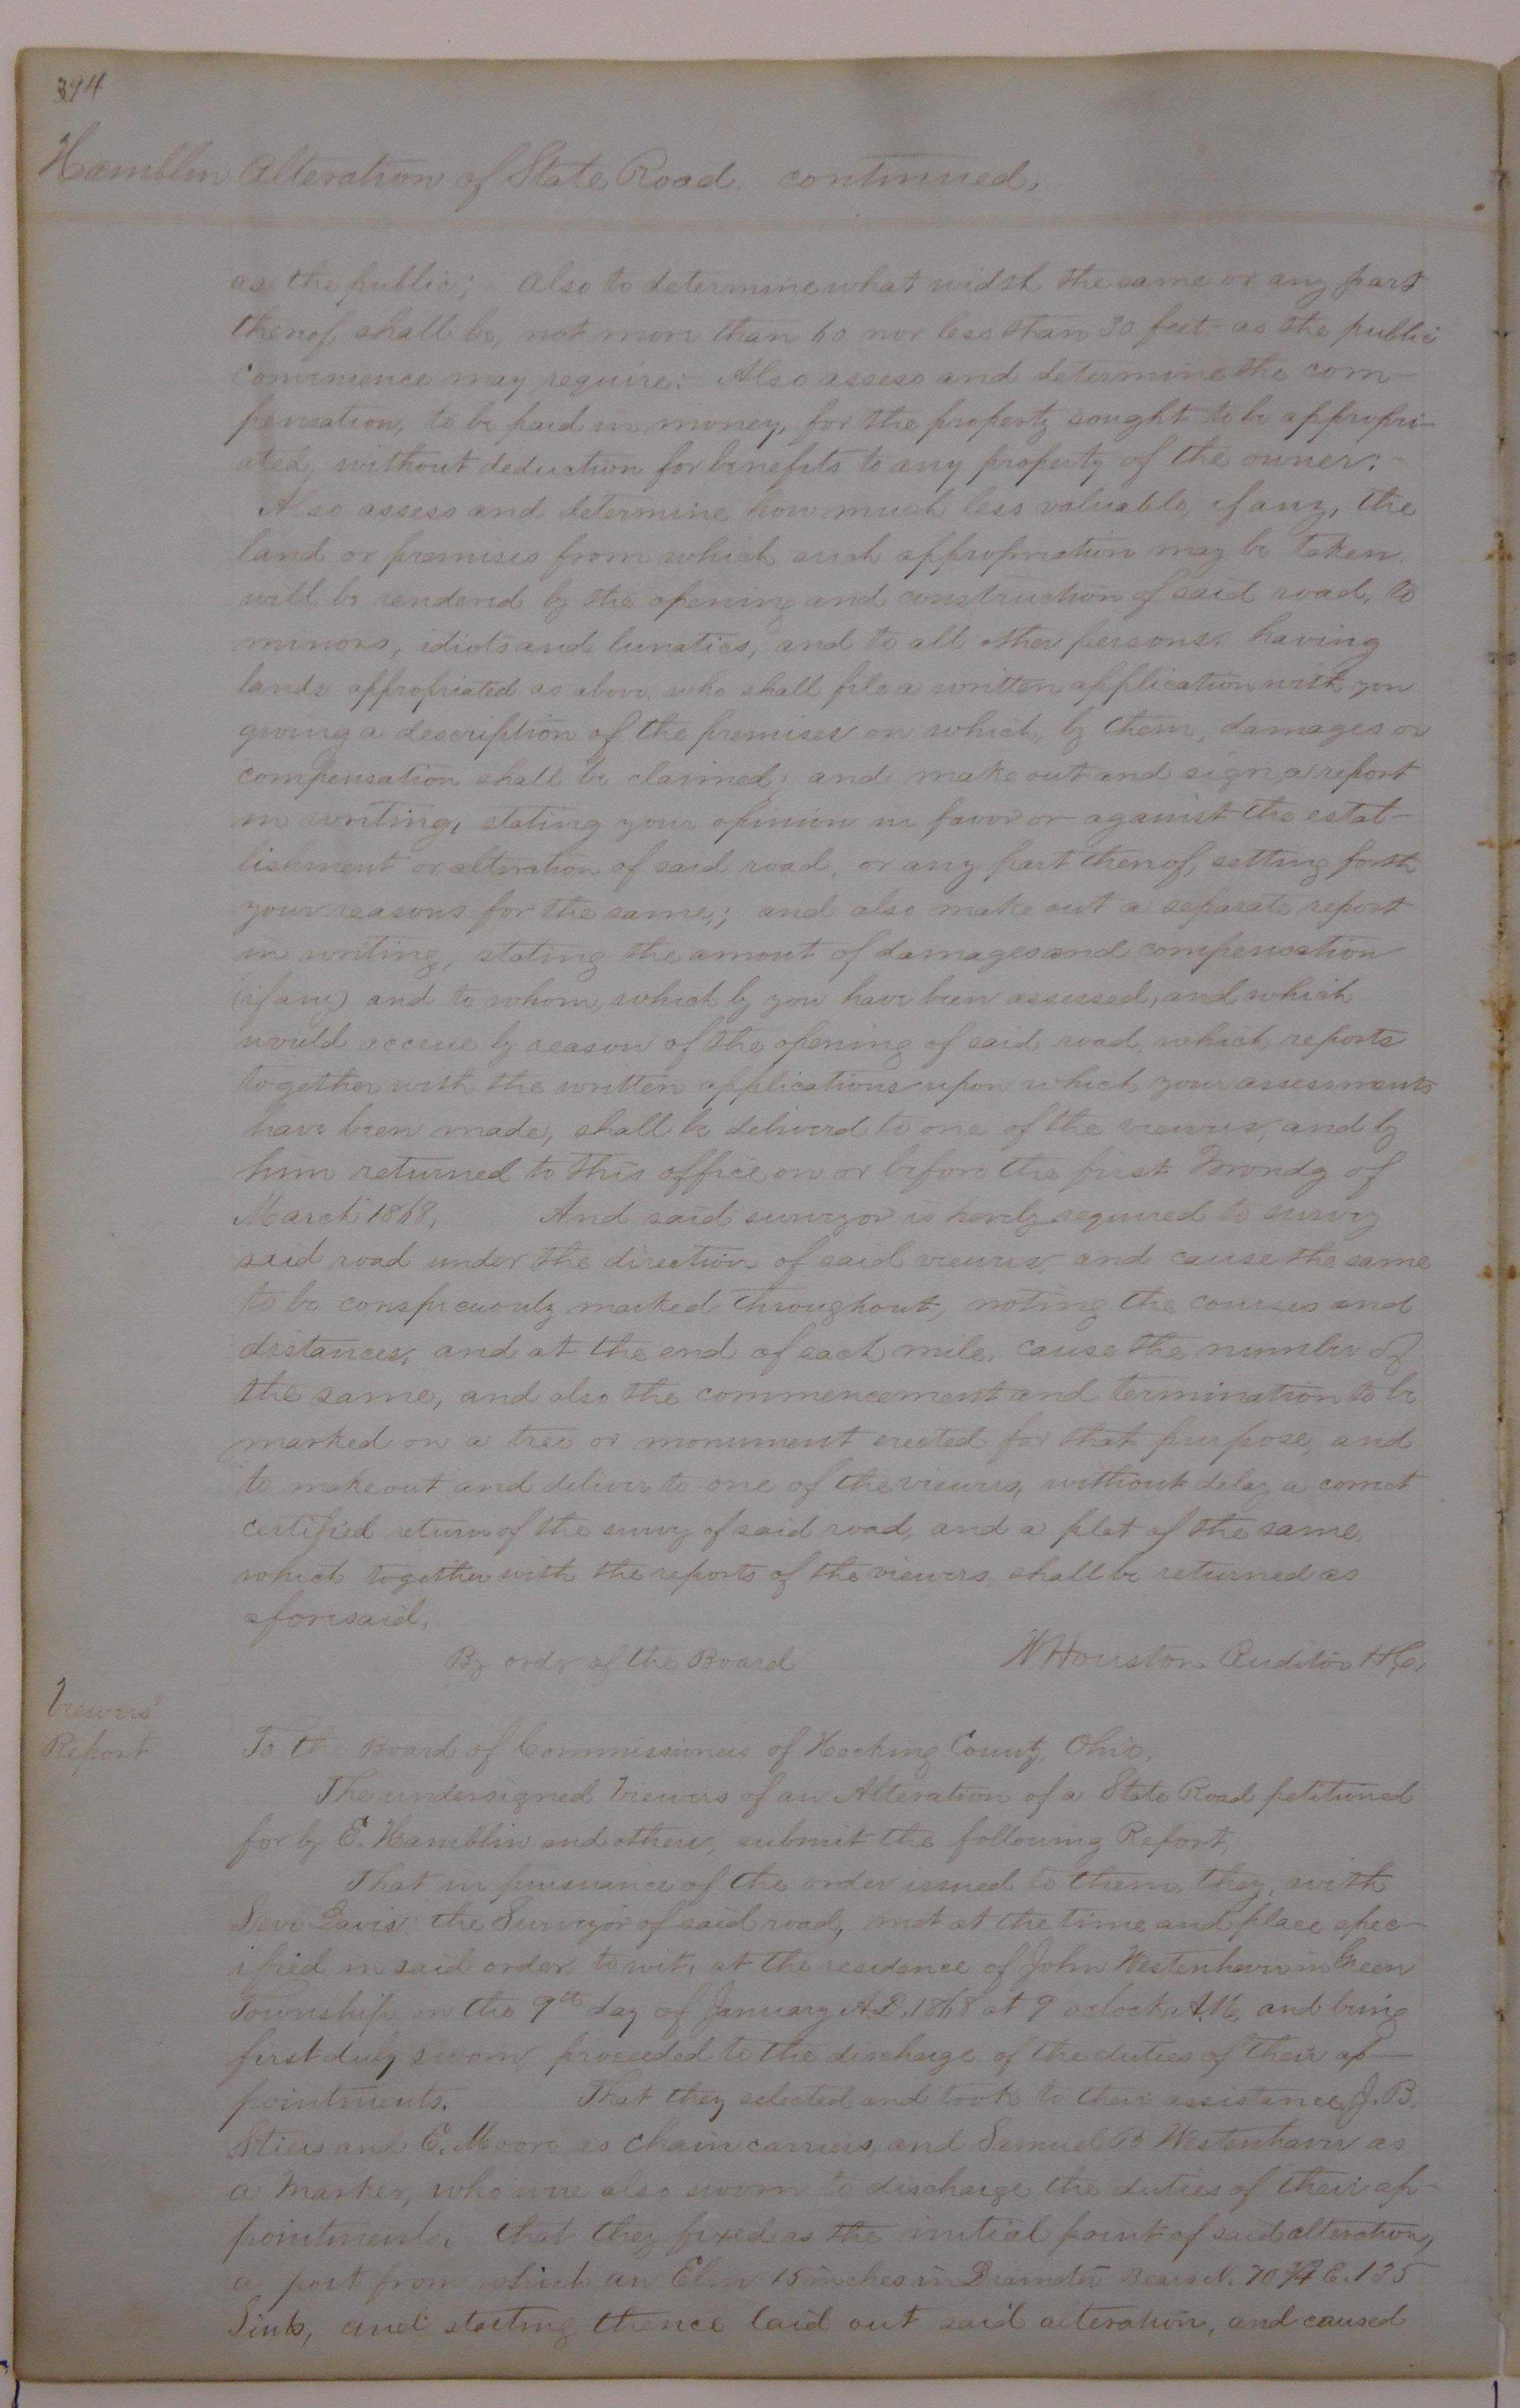 394
Hamblin Alteration of State Road. continued.
as the public; Also to determine what width the same or any part
thereof, shall be, not more than 60 nor less than 30 feet as the public
convenience may require:- Also assess and determine the com-
pensation, to be paid in money, for the property sought to be appropri-
ated, without deduction for benefits to any property of the owner:-
Also assess and determine how much less valuable, if any, the
land or premises from which such appropriation may be taken.
will be rendered by the opening and construction of said road, to
minors, idiots and lunatics, and to all other persons. having
lands appropriated as above, who shall file a written application with you
giving a description of the premises on which, by them, damages or
compensation shall be claimed; and make out and sign, a report
in writing, stating your opinion in favor or against the estab-
lishment or alteration of said road, or any part thereof, setting forth
your reasons for the same,; and also make out a separate report
in writing, stating the amout of damages and compensation
(if any) and to whom, which by you have been assessed, and which
would accrue by reason of the opening of said road, which reports
together with the written applications upon which your assessments
have been made, shall be deliverd to one of the viewers, and by
him returned to this office on or before the first Mondy of
March 1868. And said surveyor is hereby required to survey
said road under the direction of said viewers, and cause the same
to be conspicuously marked throughout, noting the courses and
distances, and at the end of each mile, cause the number of
the same, and also the commencement and termination to be
marked on a tree or monument erected for that purpose, and
to make out and deliver to one of the viewers, without delay a correct
certified return of the survey of said road, and a plat of the same.
which together with the reports of the viewers, shall be returned as
aforesaid.
By ordr of the Board W Houston Auditor H.C.
Viewers'
Report
To the Board of Commissioners of Hocking County, Ohio.
The undersigned Viewers of an Alteration of a State Road petitioned
for by E. Hamblin and others, submit the following Report,
That in pursuance of the order issued to them, they, with
Levi Davis the Surveyor of said road, met at the time and place spec-
ified in said order, to wit, at the residence of John Westenhaver in Green
Township, on the 9th day of January A.D. 1868 at 9 oclock A.M. and being
first duly sworn, proceeded to the discharge of the duties of their ap-
pointments. That they selected and took to their assistance, J. B.
Stiers and E. Moore as chain carriers, and Samuel B Westenhaver as
a marker, who were also sworn to discharge the duties of their ap-
pointments. that they fixed as the initial point of said alteration,
a post from which an Elm 15 inches in Diameter Bears N. 70 3/4 E. 135
Links, and starting thence laid out said alteration, and caused